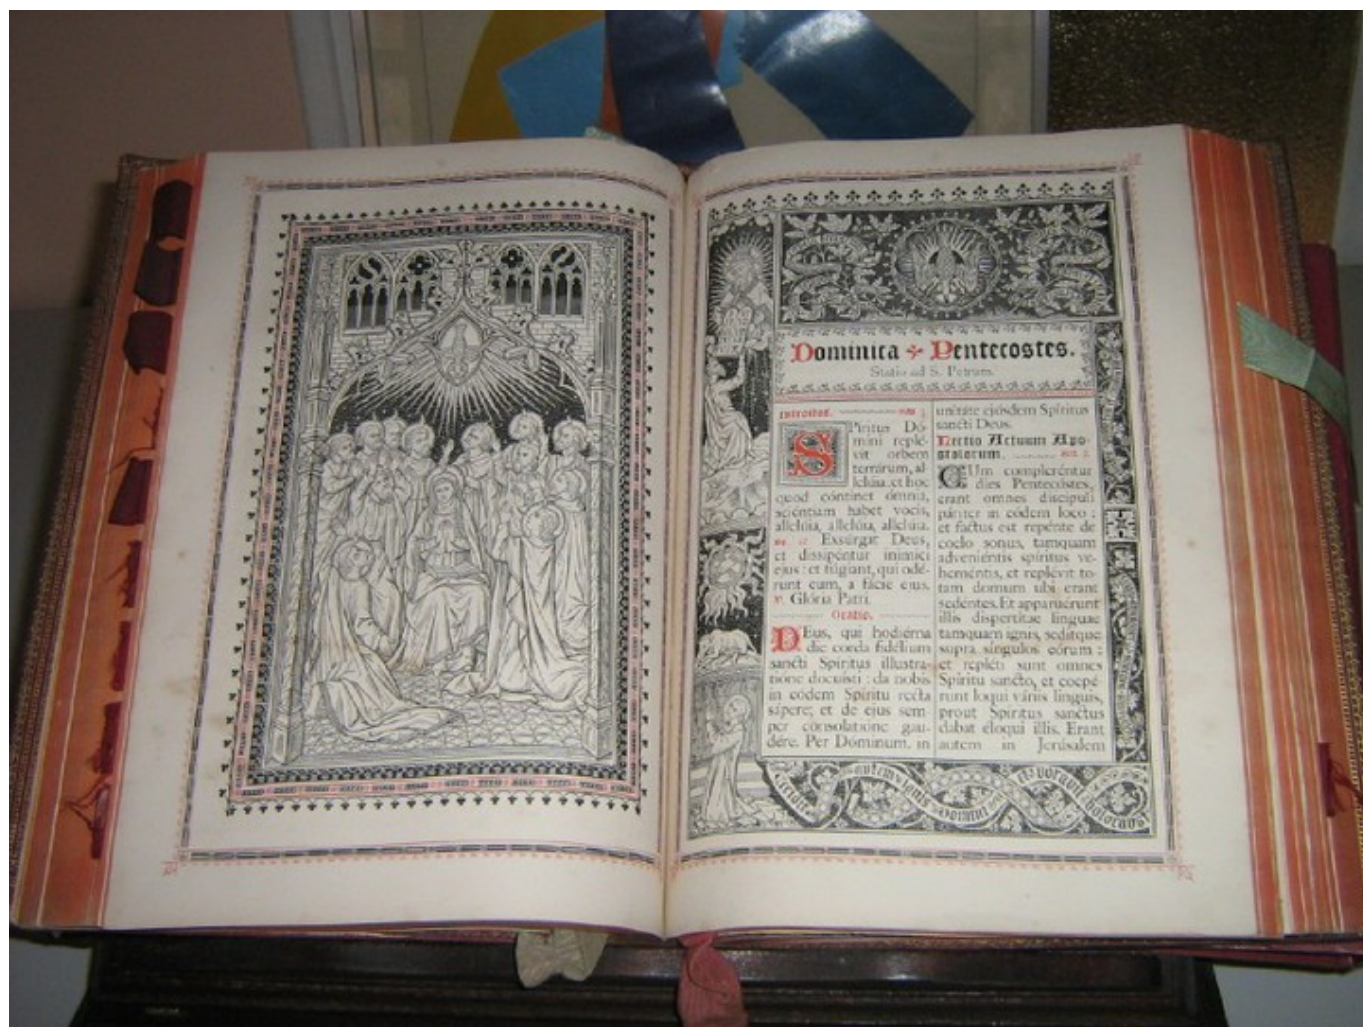 Dominica ✣ Pentecostes.
Statio ad S. Petrum.
Introitus.
SPiritus Dó-
mini replé-
vit orbem
terrárum, al-
lelúia: et hoc
quod cóntinet ómnia,
sciéntiam habet vocis,
allelúia, allelúia, allelúia.
Exsúrgat Deus,
et dissipéntur inimíci
ejus: et fúgiant, qui odé-
runt eum, a fácie ejus.
℣. Glória Patri.
Oratio.
DEus, qui hodiérna
die corda fidélium
sancti Spíritus illustra-
tióne docuísti: da nobis
in eódem Spíritu recta
sápere; et de ejus sem-
per consolatióne gau-
dére. Per Dóminum. in
unitáte ejúsdem Spíritus
sancti Deus.
Lectio Actuum Apo-
stolorum.
CUm compleréntur
dies Pentecóstes,
erant omnes discípuli
páriter in eódem loco:
et factus est repénte de
coelo sonus, tamquam
adveniéntis spíritus ve-
heméntis, et replévit to-
tam domum ubi erant
sedéntes. Et apparuérunt
illis dispertítae linguae
tamquam ignis, sedítque
supra síngulos eórum:
et repléti sunt omnes
Spíritu sancto, et coepé-
runt loqui váriis linguis,
prout Spíritus sanctus
dabat éloqui illis. Erant
autem in Jerúsalem